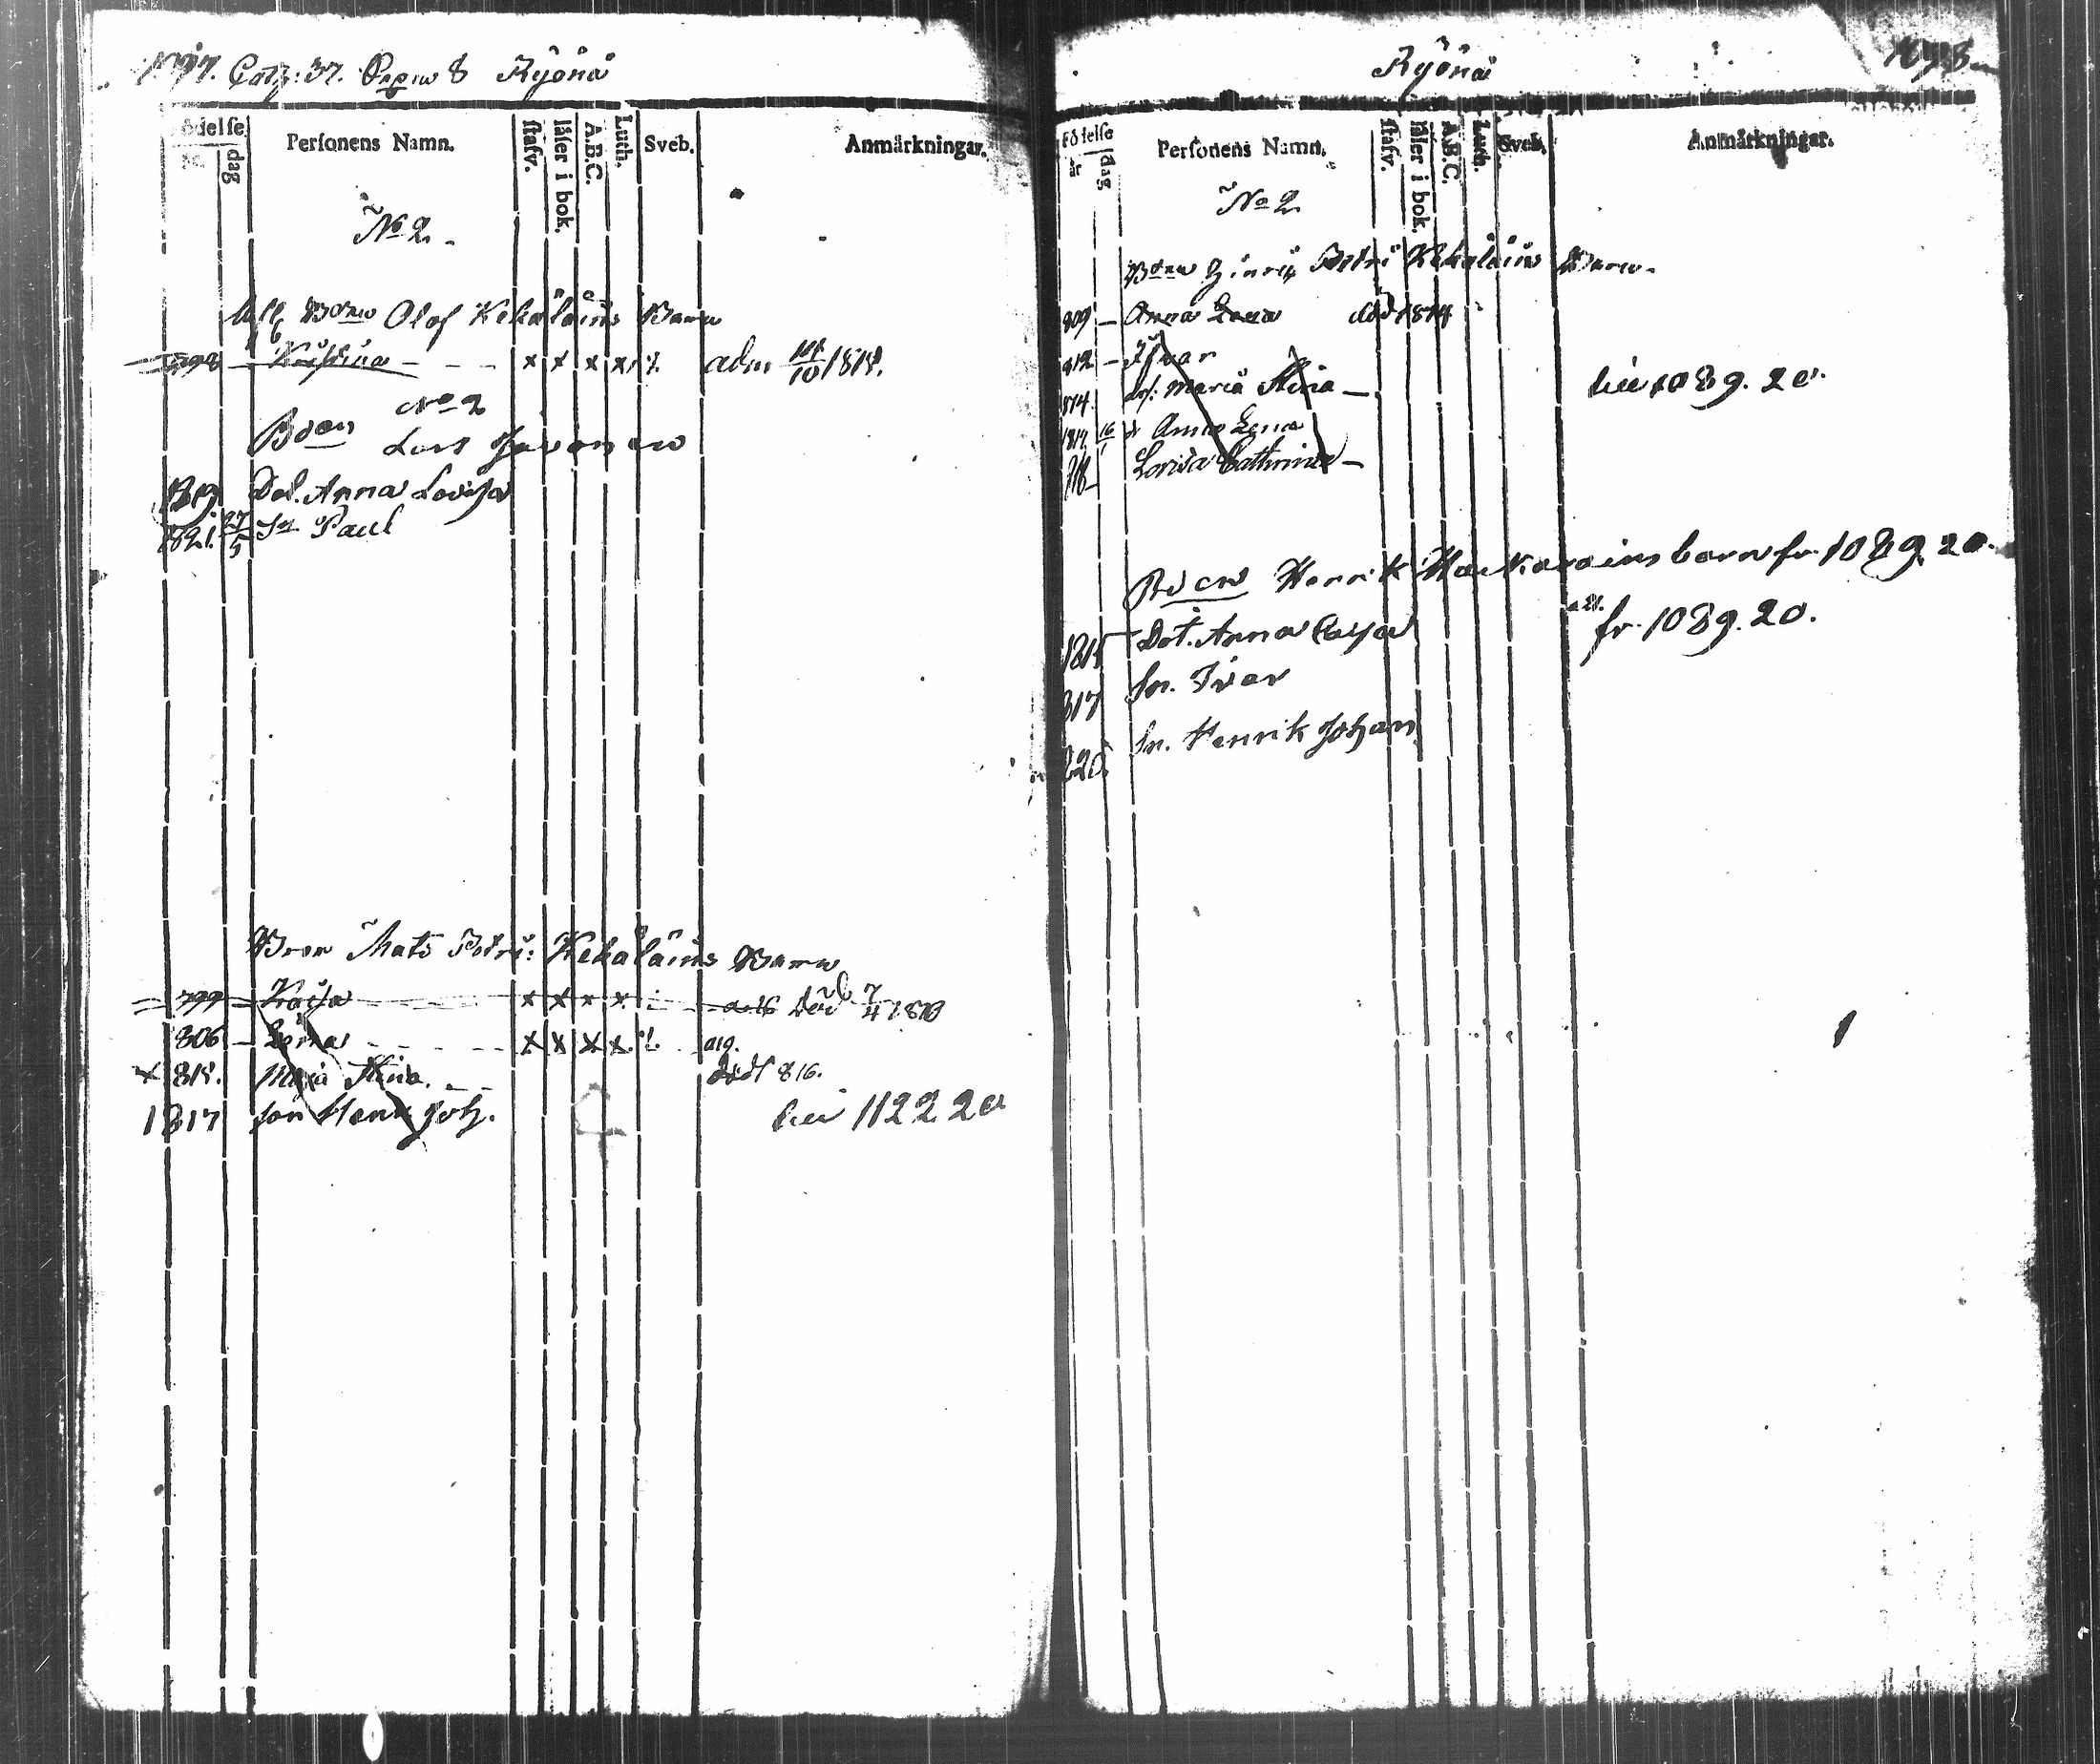 1097. Catz: 37. 8 Kyönä
Födelse
dag
Personens Namn.
stafv.
läser i bok.
A.B.C.
Luth.
Sveb.
Anmärkningar.
No 2.
Olof Kekäläins Barn
798 Kristina x x x x adm 1818.
No 2
Bden Lars
1819 Dot. Anna Lovisa
1821. 27/5 Sn Paul
Mats Petri: Kekäläins Barn
799 Kaisa x x x x död 7/4 1810
806 Lena x x x x a19.
x 815. Maja Stina. död 816.
1817 son Henr Joh. 1122 20
Kyönä 1098
Födelse
år
dag
Personens Namn.
stafv.
läser i bok.
A.B.C.
Luth.
Sveb.
Anmärkningar.
No 2.
Bden Hinric Petri Kekäläins Barn
809 Anna Lena död 1814
812 Ifvar
814. dot: Maria Stina 1089. 20.
1817. 16/1 dr Anna Lena
Lovisa Cathrina
Bden Henrik barn fr. 1089. 20.
1815 Dot. Anna Caisa fr. 1089. 20.
817 Sn. Ivar
820. Sn. Henrik Johan